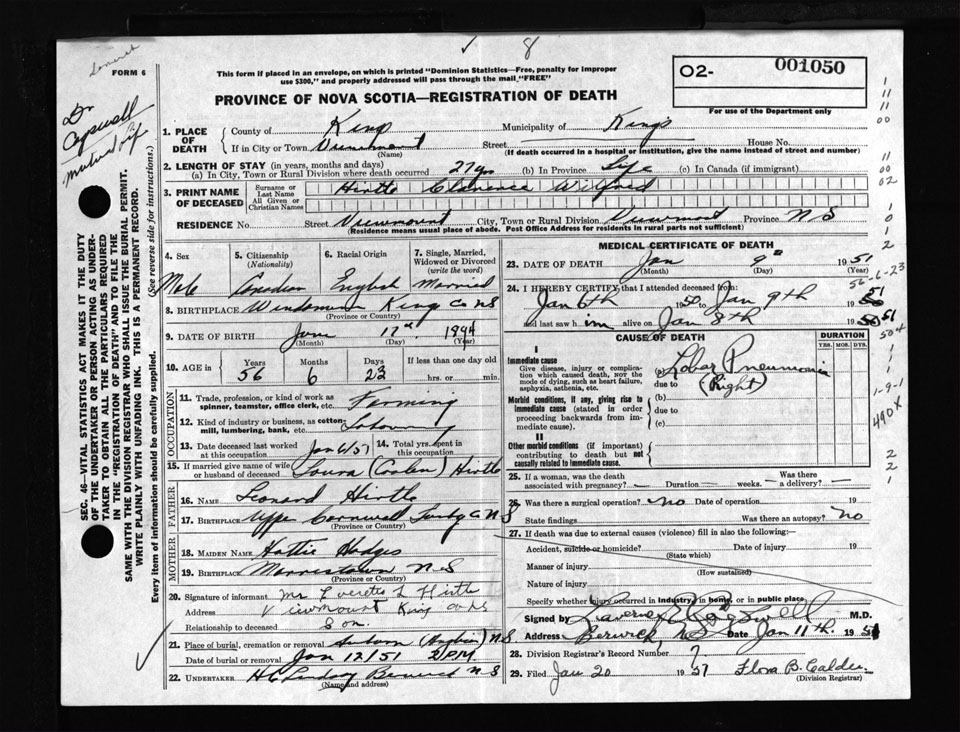 8
FORM 6
This form if placed in an envelope, on which is printed "Dominion Statistics—Free, penalty for improper
use $300," and properly addressed will pass through the mail "FREE"
O2- 001050
For use of the Department only
PROVINCE OF NOVA SCOTIA—REGISTRATION OF DEATH
Dr
SEC. 46—VITAL STATISTICS ACT MAKES IT THE DUTY
OF THE UNDERTAKER OR PERSON ACTING AS UNDER-
TAKER TO OBTAIN ALL THE PARTICULARS REQUIRED
IN THE "REGISTRATION OF DEATH" AND TO FILE THE
SAME WITH THE DIVISION REGISTRAR WHO SHALL ISSUE THE BURIAL PERMIT.
WRITE PLAINLY WITH UNFADING INK. THIS IS A PERMANENT RECORD.
Every item of information should be carefully supplied. (See reverse side for instructions.)
1. PLACE OF DEATH County of Kings Municipality of Kings
If in City or Town Viewmount (Name) Street House No.
(If death occurred in a hospital or institution, give the name instead of street and number)
2. LENGTH OF STAY (in years, months and days)
(a) In City, Town or Rural Division where death occurred 27 yrs (b) In Province Life (c) In Canada (if immigrant)
3. PRINT NAME OF DECEASED Surname or Last Name All Given or Christian Names Hirtle Clarence Wilfred
RESIDENCE No. Street Viewmount City, Town or Rural Division Viewmont Province N S
(Residence means usual place of abode. Post Office Address for residents in rural parts not sufficient)
4. Sex 5. Citizenship (Nationality) 6. Racial Origin 7. Single, Married, Widowed or Divorced (write the word)
Male Canadian English Married
8. BIRTHPLACE Kings Co NS
(Province or Country)
9. DATE OF BIRTH 17th 1894
(Month) (Day) (Year)
10. AGE in Years Months Days If less than one day old
56 6 23 hrs. or min.
OCCUPATION
11. Trade, profession, or kind of work as
spinner, teamster, office clerk, etc. Farming
12. Kind of industry or business, as cotton-
mill, lumbering, bank, etc.
13. Date deceased last worked at this occupation Jan 6/51 14. Total yrs. spent in this occupation
15. If married give name of wife or husband of deceased Laura Hirtle
FATHER
16. NAME Leonard Hirtle
17. BIRTHPLACE Cornwall N S
(Province or Country)
MOTHER
18. MAIDEN NAME Hattie Hodges
19. BIRTHPLACE Morristown N S
(Province or Country)
20. Signature of informant Mr Everette L Hirtle
Address Viewmount Kings Co NS
Relationship to deceased Son
21. Place of burial, cremation or removal N S
Date of burial or removal Jan 12/51 2 P.M.
22. UNDERTAKER H C Lindsay Berwick N S
(Name and address)
MEDICAL CERTIFICATE OF DEATH
23. DATE OF DEATH Jan 9th 1951
(Month) (Day) (Year)
24. I HEREBY CERTIFY that I attended deceased from:
Jan 6th to Jan 9th 51
and last saw him alive on Jan 8th 19 51
CAUSE OF DEATH
DURATION
YRS. MOS. DYS.
I
Immediate cause
Give disease, injury or complica-
tion which caused death, nor the
mode of dying, such as heart failure,
asphyxia, asthenia, etc.
(a) Lobar Pneumonia
due to (Right)
Morbid conditions, if any, giving rise to
immediate cause (stated in order
proceeding backwards from im-
mediate cause).
(b)
due to
(c)
II
Other morbid conditions (if important)
contributing to death but not
causally related to immediate cause.
25. If a woman, was the death
associated with pregnancy? — Duration — weeks. Was there a delivery? —
26. Was there a surgical operation? no Date of operation 19
State findings Was there an autopsy? no
27. If death was due to external causes (violence) fill in also the following:—
Accident, suicide or homicide? Date of injury 19
(State which)
Manner of injury
(How sustained)
Nature of injury
Specify whether injury occurred in Industry, in home, or in public place
Signed by M.D.
Address Berwick, N.S. Date Jan 11th. 1951
28. Division Registrar's Record Number 7
29. Filed Jan 20 1951 Flora B. Calder
(Division Registrar)
490X